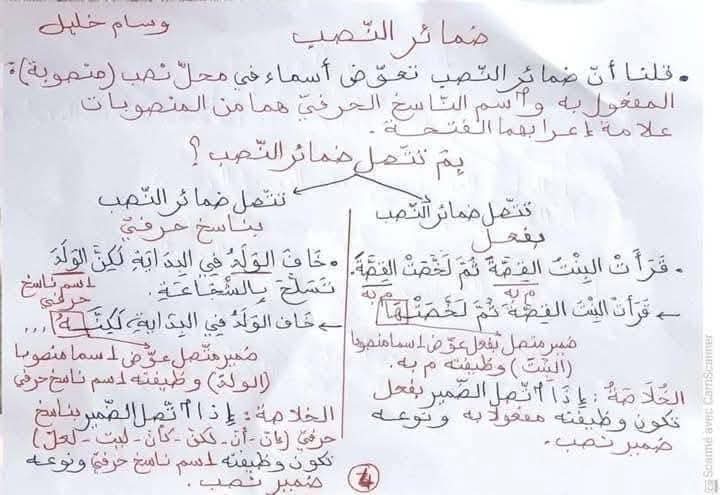 وسام خليل
ضمائر النّصب
• قلنا أنّ ضمائر النّصب تعوّض أسماء في محلّ نصب (منصوبة):
المفعول به واسم النّاسخ الحرفيّ هما من المنصوبات
علامة إعرابهما الفتحة.
بِمَ تتّصل ضمائر النّصب؟
تتّصل ضمائر النّصب
بفعل
• قَرَأَتْ البِنْتُ القِصَّةَ ثُمَّ لَخَّصَتْ القِصَّةَ.
م به م به
← قَرَأَتْ البِنْتُ القِصَّةَ ثُمَّ لَخَّصَتْهَا
ضمير متّصل بفعل عوّض اسما منصوبا
(البِنْتَ) وظيفته م به.
الخُلاَصَةُ: إِذَا اتّصل الضّمير بفعل
تكون وظيفته مفعولا به ونوعه
ضمير نصب.
تتّصل ضمائر النّصب
بناسخ حرفيّ
• خَافَ الوَلَدُ فِي البِدَايَةِ لَكِنَّ الوَلَدَ
تَسَلَّحَ بِالشَّجَاعَةِ.
اسم ناسخ
حرفي
← خَافَ الوَلَدُ فِي البِدَايَةِ لَكِنَّهُ...
ضمير متّصل عوّض اسما منصوبا
(الولدَ) وظيفته اسم ناسخ حرفي
الخلاصة: إِذَا اتّصل الضّمير بناسخ
حرفيّ (إنّ - أنّ - لكنّ - كأنّ - ليت - لعلّ)
تكون وظيفته اسم ناسخ حرفيّ ونوعه
ضمير نصب.
4
Scanné avec CamScanner